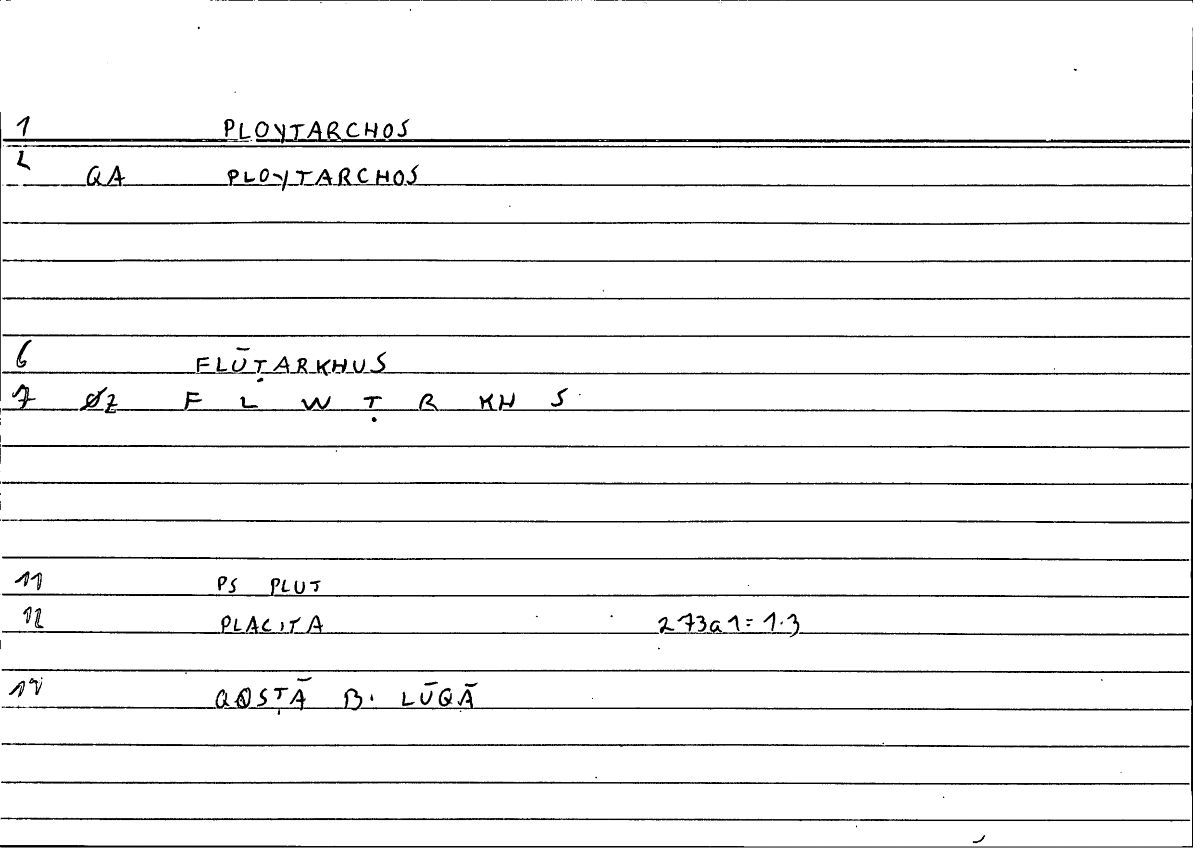 1 PLOYTARCHOS
2 QA PLOYTARCHOS
6 FLŪṬARKHUS
7 ØZ F L W Ṭ R KH S
11 PS PLUT
12 PLACITA 273a1=1.3
QOSṬĀ B. LŪQĀ